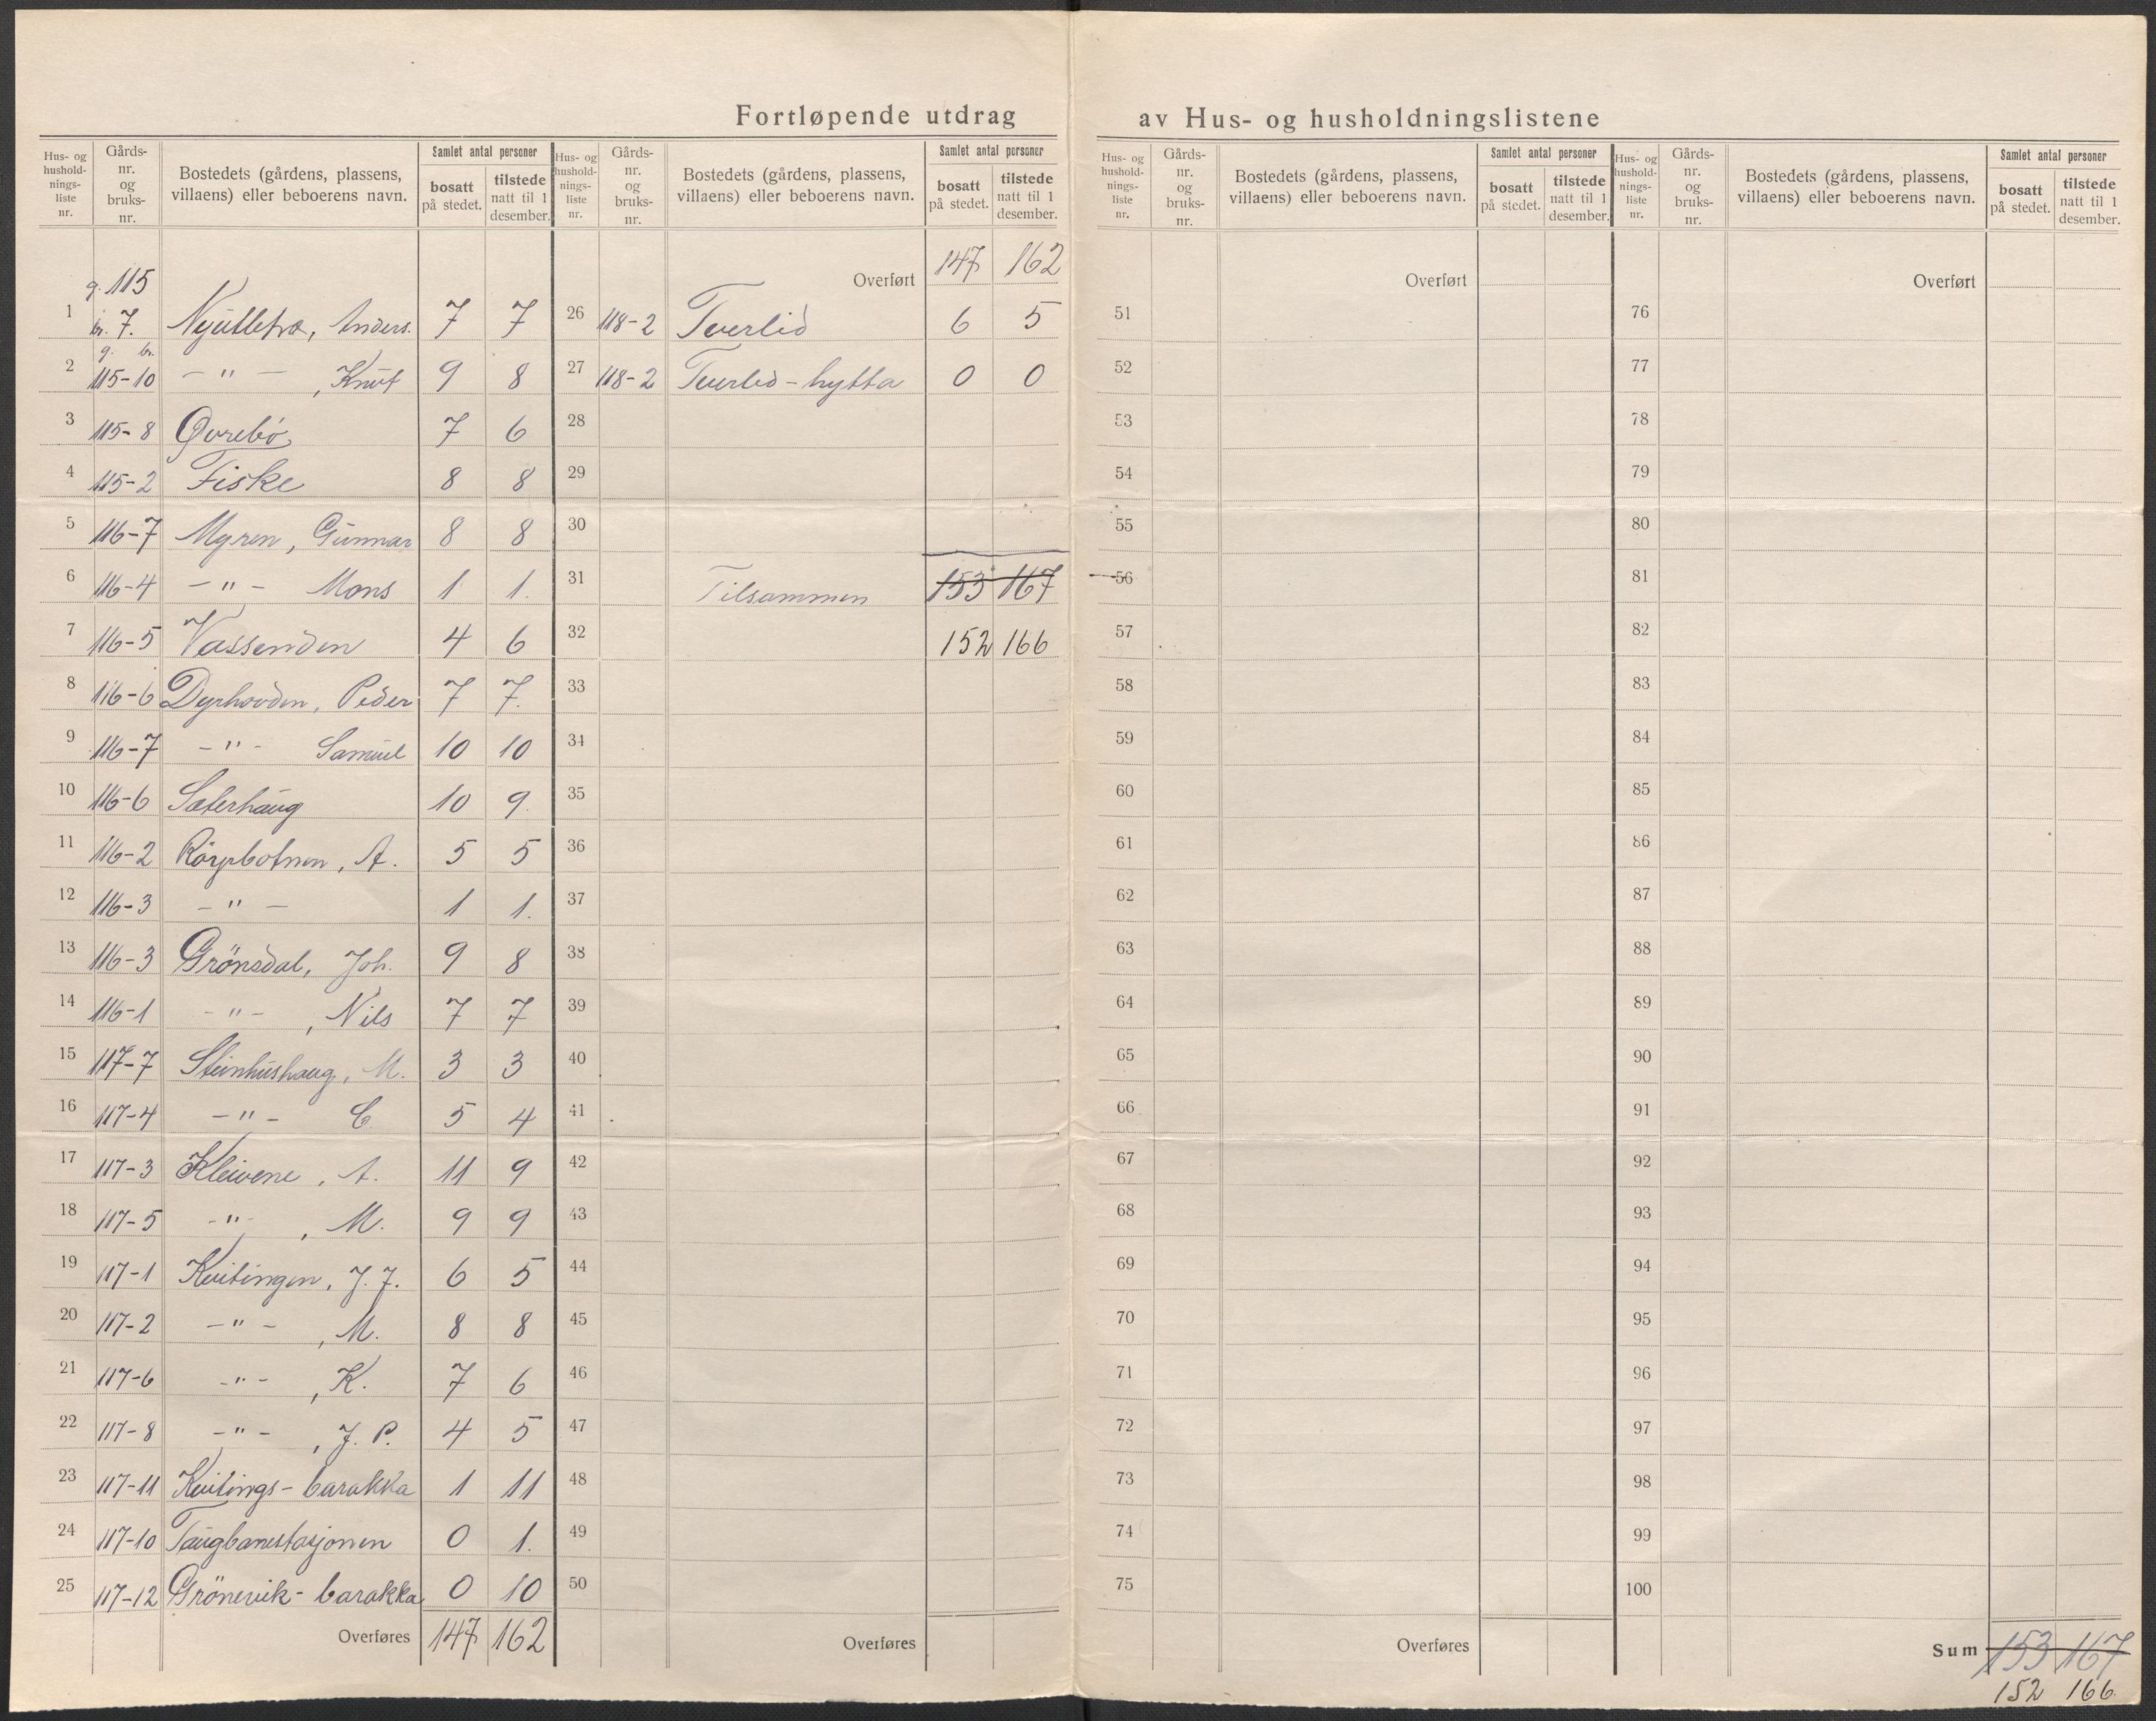 Fortløpende utdrag av Hus- og husholdningslistene
Hus- og hushold- nings- liste nr. | Gårds- nr. og bruks- nr. | Bostedets (gårdens, plassens, villaens) eller beboerens navn. | Samlet antal personer | bosatt på stedet. | tilstede natt til 1 desember.
Hus- og hushold- nings- liste nr. | Gårds- nr. og bruks- nr. | Bostedets (gårdens, plassens, villaens) eller beboerens navn. | Samlet antal personer | bosatt på stedet. | tilstede natt til 1 desember.
Hus- og hushold- nings- liste nr. | Gårds- nr. og bruks- nr. | Bostedets (gårdens, plassens, villaens) eller beboerens navn. | Samlet antal personer | bosatt på stedet. | tilstede natt til 1 desember.
Hus- og hushold- nings- liste nr. | Gårds- nr. og bruks- nr. | Bostedets (gårdens, plassens, villaens) eller beboerens navn. | Samlet antal personer | bosatt på stedet. | tilstede natt til 1 desember.
1 g. 115 br. 7. Anders. 7 7
2 g. br. 115-10 -"- , Knut 9 8
3 115-8 Øvrebø 7 6
4 115-2 Fiske 8 8
5 116-7 Myren, Gunnar 8 8
6 116-4 -"- Mons 1 1.
7 116-5 Vassenden 4 6
8 116-6 Dyrhovden, Peder 7 7.
9 116-7 -"- Samuel 10 10
10 116-6 Sæterhaug 10 9.
11 116-2 A. 5 5
12 116-3 -"- 1 1.
13 116-3 Grönsdal, Joh. 9 8
14 116-1 -"- , Nils 7 7
15 117-7 Steinhushaug, M. 3 3
16 117-4 -"- C. 5 4
17 117-3 Kleivene, A. 11 9
18 117-5 -"- , M. 9 9
19 117-1 Kvitingen, J. J. 6 5
20 117-2 -"- , M. 8 8
21 117-6 -"- , K. 7 6
22 117-8 -"- , J. P. 4 5
23 117-11 Kvitings-barakka 1 11
24 117-10 Taugbanestasjonen 0 1.
25 117-12 Grönevik-barakka 0 10
Overføres 147 162
Overført 147 162
26 118-2 Tverlid 6 5
27 118-2 Tverlid-hytta 0 0
28
29
30
31 Tilsammen 153 167
32 152 166
33
34
35
36
37
38
39
40
41
42
43
44
45
46
47
48
49
50
Overføres
Overført
51
52
53
54
55
56
57
58
59
60
61
62
63
64
65
66
67
68
69
70
71
72
73
74
75
Overføres
Overført
76
77
78
79
80
81
82
83
84
85
86
87
88
89
90
91
92
93
94
95
96
97
98
99
100
Sum 153 167
152 166